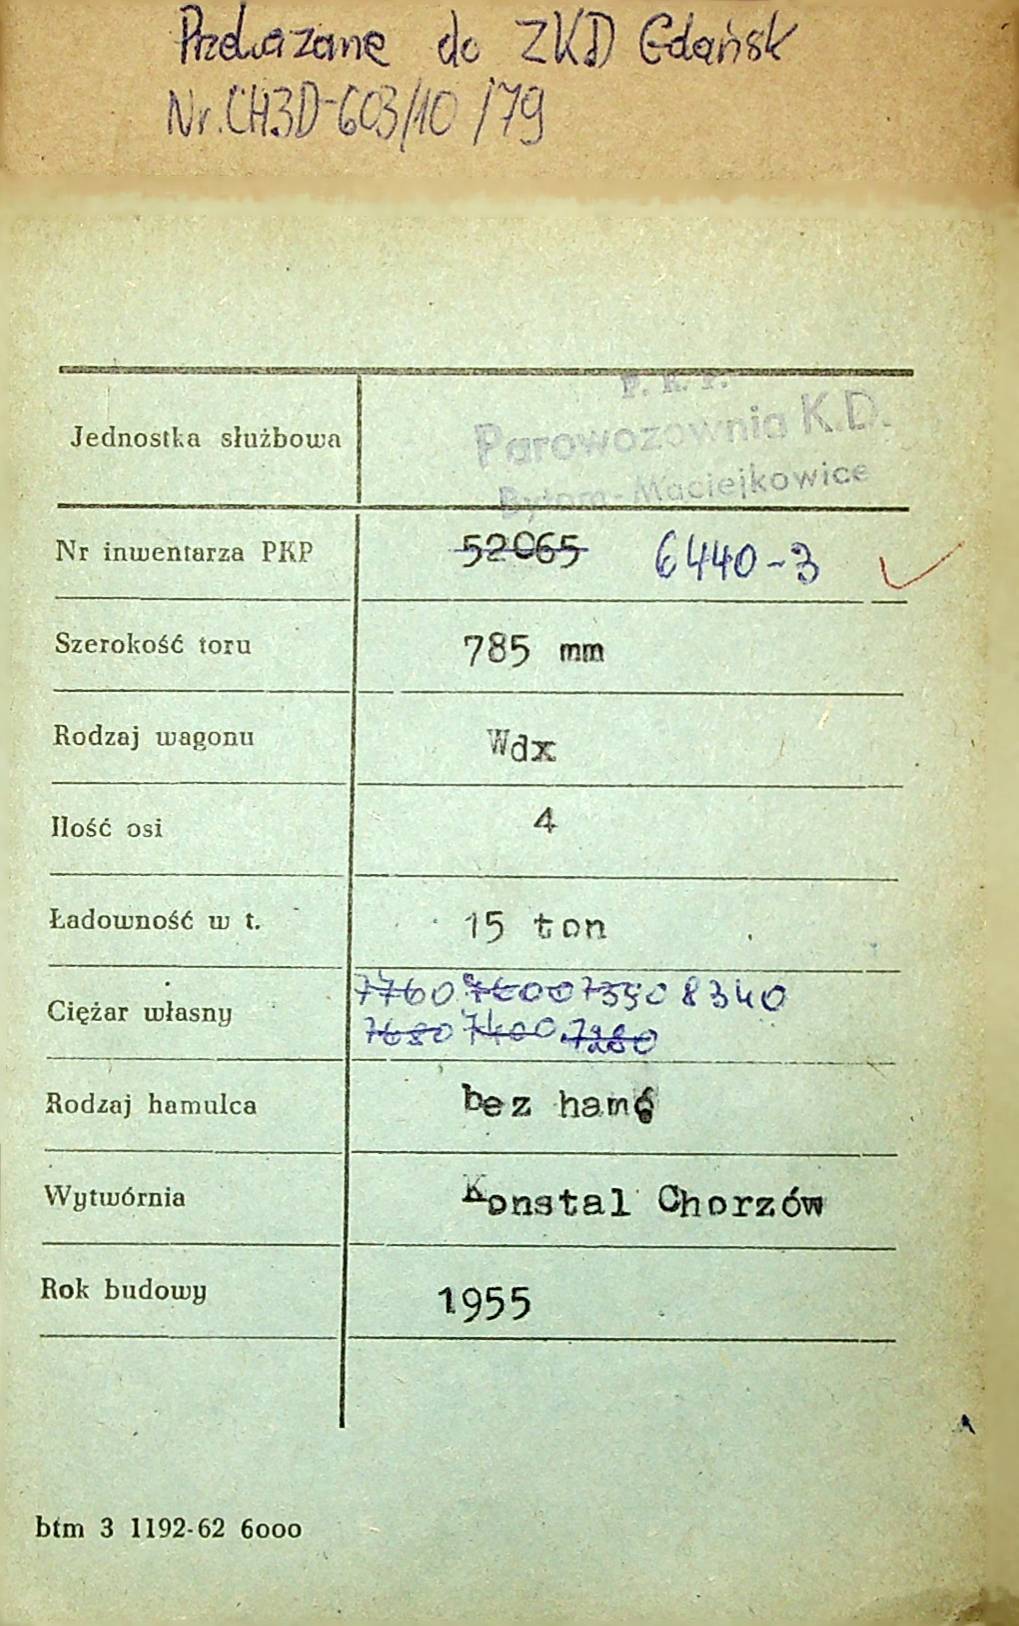 Przekazane do ZKD Gdańsk
Nr. CH3D-603/10/79
P. K. P.
Jednostka służbowa Parowozownia K.D.
Bytom-Maciejkowice
Nr inwentarza PKP 52065 6440-3
Szerokość toru 785 mm
Rodzaj wagonu Wdx
Ilość osi 4
Ładowność w t. 15 ton
7760 7600 7350 8340
Ciężar własny
7680 7400 7280
Rodzaj hamulca bez ham.
Wytwórnia Konstal Chorzów
Rok budowy 1955
btm 3 1192-62 6000